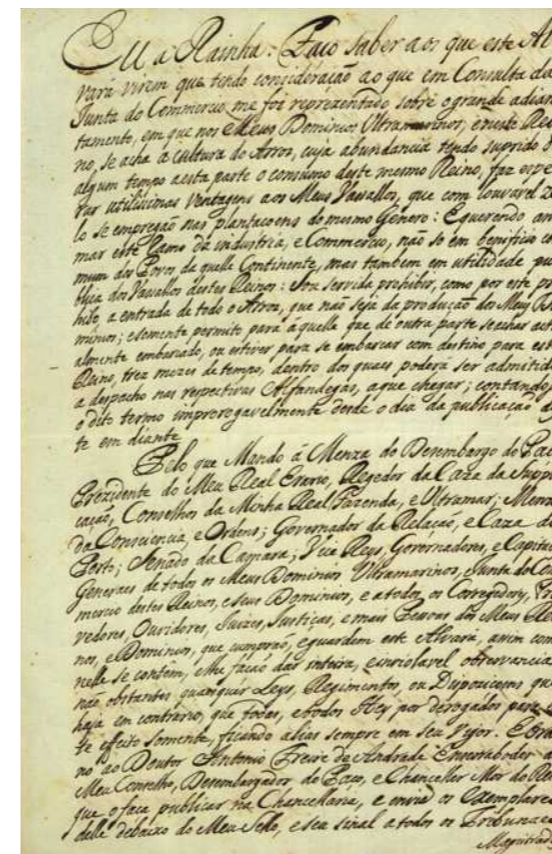 Eu a Rainha. Faço saber aos que este Al
vará virem que tendo consideração ao que em Consulta da
Junta do Commercio me foi reprezentado sobre o grande adian
tamento, em que nos Meus Dominios Ultramarinos, e neste Rei
no, se acha a cultura do Arros, cuja abundancia tendo suprido d
algum tempo a esta parte o consumo deste mesmo Reino, faz espe
rar utilissimas ventagens aos Meus Vassallos, que com louvavel z
lo se empregão nas plantaçoens do mesmo Genero: E querendo ani
mar este Ramo da industria, e Commercio, não só em beneficio co
mum dos Povos da quelle Continente, mas tambem em utilidade pu
blica dos Vassallos destes Reinos: Sou servida prohibir, como por este pro
hibo, a entrada de todo o Arros, que não seja da produção dos Meus Do
minios; e somente permito para aquelle que de outra parte se achar actu
almente embarcado, ou estiver para se embarcar com destino para est
Reino, trez mezes de tempo, dentro dos quaes poderá ser admitid
a despacho nas respectivas Alfandegas, a que chegar; contando
o dito termo improrogavelmente desde o dia da publicação d
te em diante
Pelo que Mando á Meuza do Desembargo do Paç
Prezidente do Meu Real Erario, Regedor da Caza da Suppli
cação, Conselhos da Minha Real Fazenda, e Ultramar; Menza
da Consciencia, e Ordens; Governador da Relação, e Caza do
Porto; Senado da Camara; Vice Reys, Governadores, e Capita
Generaes de todos os Meus Dominios Ultramarinos, Junta do Co
mercio destes Reinos, e seus Dominios, e a todos os Corregedores, Pro
vedores, Ouvidores, Juizes, Justiças, e mais Pessoas dos Meus Rei
nos, e Dominios, que cumprão, e guardem este Alvará, assim com
nelle se contém, e lhe fação dar inteira, e inviolavel observancia
não obstantes quaesquer Leys, Regimentos, ou Dispoziçoens que
haja em contrario, que todas, e todos Hey por derogados para es
te effeito somente, ficando aliás sempre em seu vigor. E Orde
no ao Doutor Antonio Freire de Andrade Enserrabodes d
Meu Conselho, Desembargador do Paço, e Chanceller Mor do Rei
que o faça publicar na Chancellaria, e envie os Exemplares
delle debaixo do Meu Sello, e seu sinal a todos os Tribunaes
Magistrad